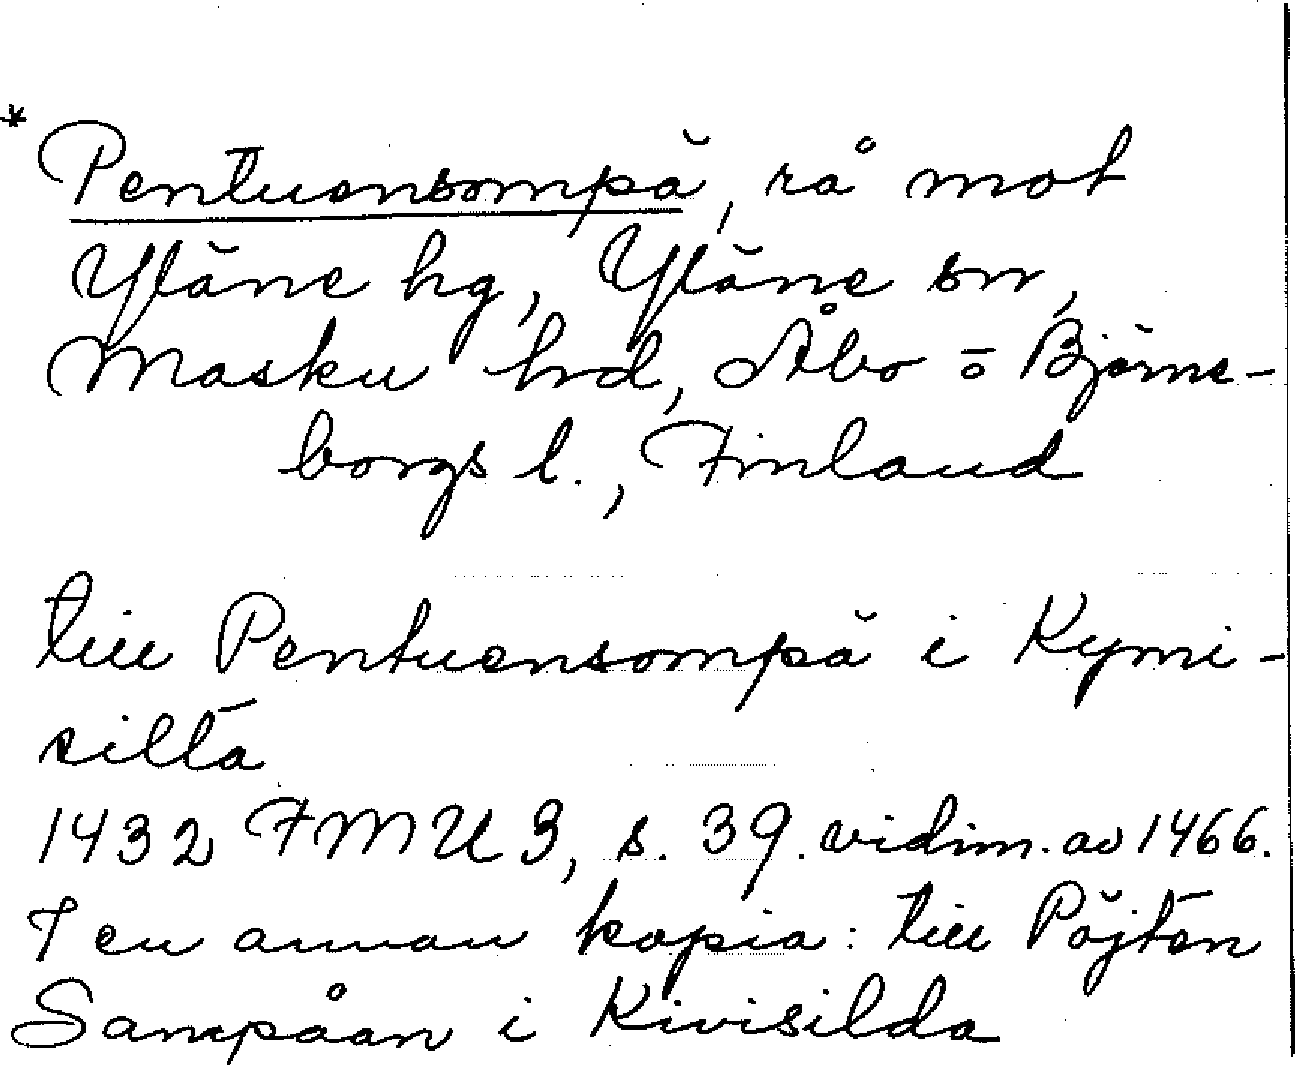 * Pentuensompä, rå mot
Yläne hg, Yläne sn,
Masku hrd, Åbo o Björne-
borgs l., Finland
till Pentuensompä i Kymi-
silta
1432 FMU 3, s. 39. vidim. av 1466.
I en annan kopia: till Pöjten
Sampåan i Kivisilda